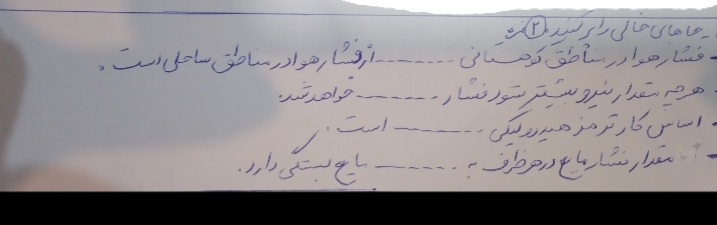 جاهای خالی را پر کنید. ۲ نمره
- فشار هوا در مناطق کوهستانی ------- از فشار هوا در مناطق ساحلی است.
- هرچه مقدار نیرو بیشتر شود فشار ------- خواهد شد.
- اساس کار ترمز هیدرولیکی ------- است.
- مقدار فشار مایع در هر ظرف به ------- مایع بستگی دارد.